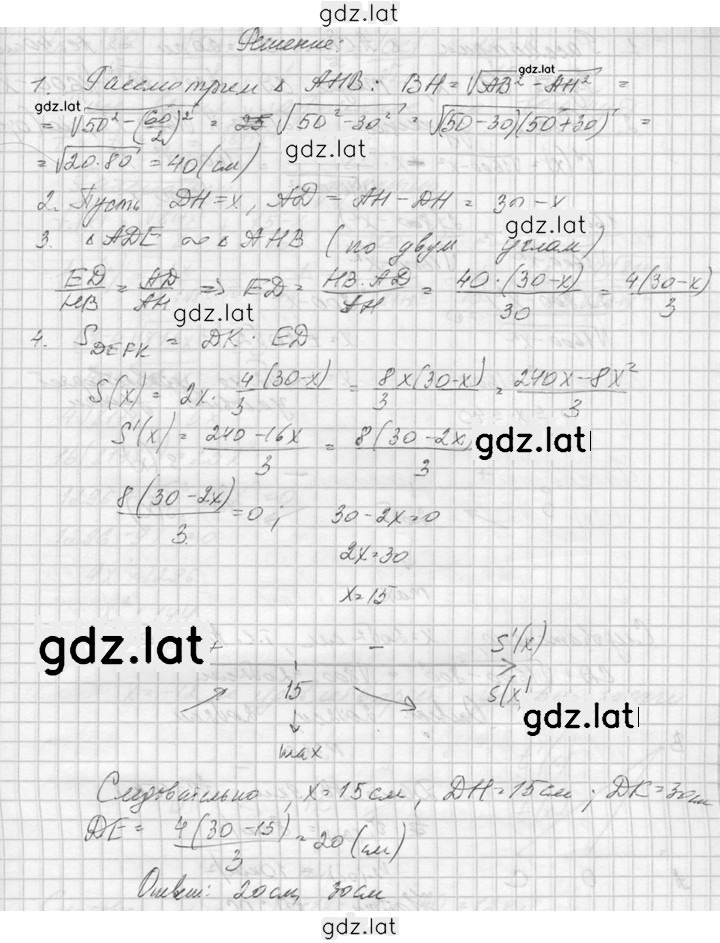 gdz.lat
Решение:
1. Рассмотрим Δ AHB: BH = √(AB² - AH²) =
gdz.lat
= √(50² - (60/2)²) = √(50² - 30²) = √((50-30)(50+30)) =
gdz.lat
= √(20·80) = 40 (см)
2. Пусть DH = x, AD = AH - DH = 30 - x
gdz.lat
3. Δ ADE ∾ Δ AHB (по двум углам)
ED/HB = AD/AH => ED = HB·AD/AH = 40·(30-x)/30 = 4(30-x)/3
gdz.lat
4. S DEFK = DK · ED
S(x) = 2x · 4(30-x)/3 = 8x(30-x)/3 = (240x - 8x²)/3
S'(x) = (240 - 16x)/3 = 8(30-2x/3
gdz.lat
8(30-2x)/3 = 0; 30 - 2x = 0
2x = 30
x = 15
gdz.lat
+ - S'(x)
15 S(x)
gdz.lat
max
Следовательно, x = 15 см, DH = 15 см; DK = 30 см
DE = 4(30-15)/3 = 20 (см)
Ответ: 20 см, 30 см
gdz.lat